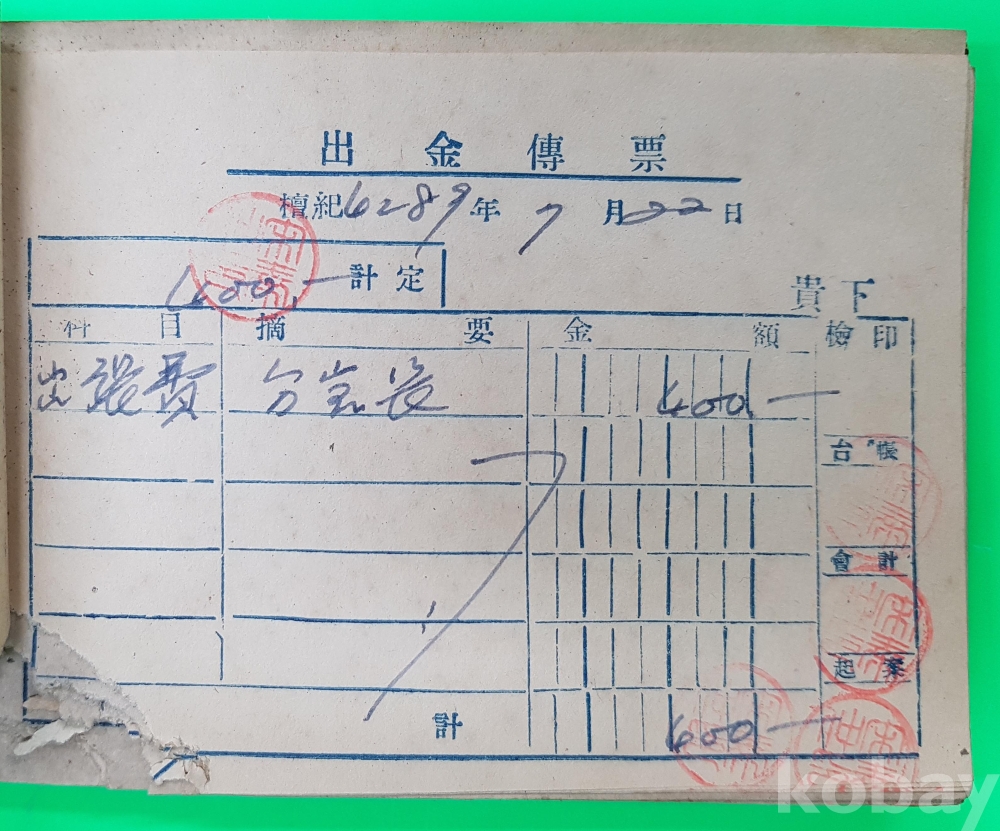 出金傳票
檀紀4289年7月22日
400— 計定
貴下
科目 摘要 金額 檢印
出張費 分室長 400—
台帳
會計
起案
計 400—
kobay